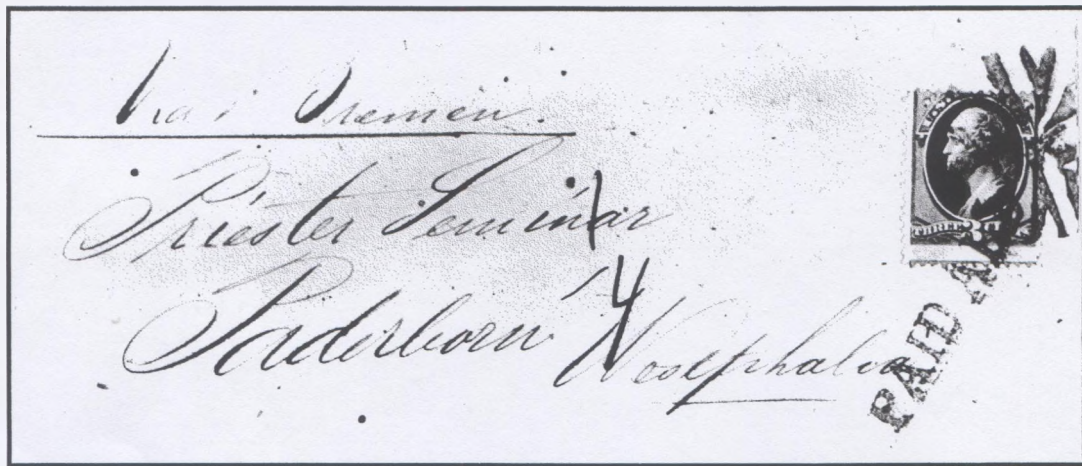 Via Bremen.
Priester Seminar
Paderborn Westphalia
4
PAID ALL
THREE